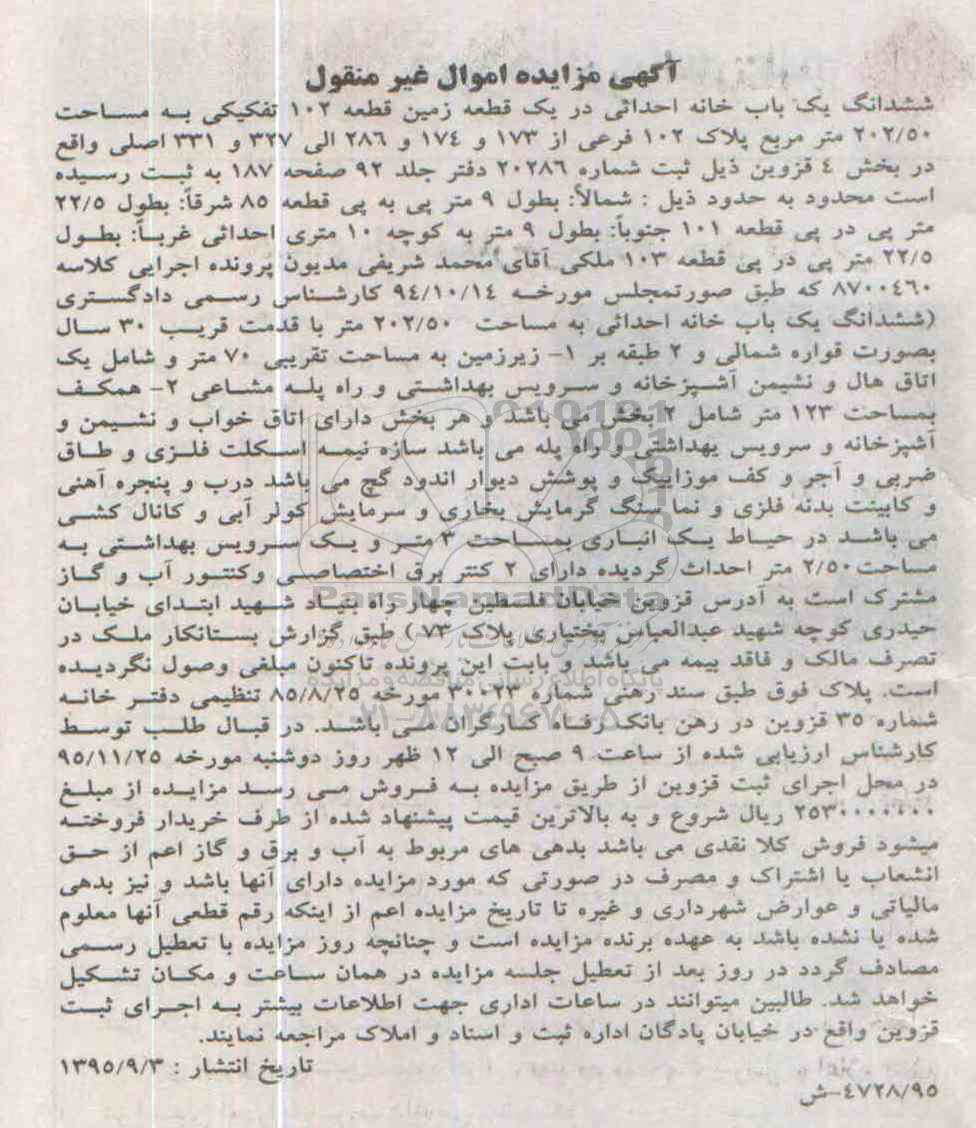 آگهی مزایده اموال غیر منقول
ششدانگ یک باب خانه احداثی در یک قطعه زمین قطعه ۱۰۲ تفکیکی به مساحت
۲۰۲/۵۰ متر مربع پلاک ۱۰۲ فرعی از ۱۷۳ و ۱۷۴ و ۲۸۶ الی ۳۲۷ و ۳۳۱ اصلی واقع
در بخش ٤ قزوین ذیل ثبت شماره ۲۰۲۸۶ دفتر جلد ۹۲ صفحه ۱۸۷ به ثبت رسیده
است محدود به حدود ذیل : شمالاً: بطول ۹ متر پی به پی قطعه ۸۵ شرقاً: بطول ۲۲/۵
متر پی در پی قطعه ۱۰۱ جنوباً: بطول ۹ متر به کوچه ۱۰ متری احداثی غرباً: بطول
۲۲/۵ متر پی در پی قطعه ۱۰۳ ملکی آقای محمد شریفی مدیون پرونده اجرایی کلاسه
۸۷۰۰٤۶۰ که طبق صورتمجلس مورخه ۹٤/۱۰/۱٤ کارشناس رسمی دادگستری
(ششدانگ یک باب خانه احداثی به مساحت ۲۰۲/۵۰ متر با قدمت قریب ۳۰ سال
بصورت قواره شمالی و ۲ طبقه بر ۱- زیرزمین به مساحت تقریبی ۷۰ متر و شامل یک
اتاق هال و نشیمن آشپزخانه و سرویس بهداشتی و راه پله مشاعی ۲- همکف
بمساحت ۱۲۳ متر شامل ۲ بخش می باشد و هر بخش دارای اتاق خواب و نشیمن و
آشپزخانه و سرویس بهداشتی و راه پله می باشد سازه نیمه اسکلت فلزی و طاق
ضربی و آجر و کف موزاییک و پوشش دیوار اندود گچ می باشد درب و پنجره آهنی
و کابینت بدنه فلزی و نما سنگ گرمایش بخاری و سرمایش کولر آبی و کانال کشی
می باشد در حیاط یک انباری بمساحت ۳ متر و یک سرویس بهداشتی به
مساحت۲/۵۰ متر احداث گردیده دارای ۲ کنتر برق اختصاصی وکنتور آب و گاز
مشترک است به آدرس قزوین خیابان فلسطین چهار راه بنیاد شهید ابتدای خیابان
حیدری کوچه شهید عبدالعباس بختیاری پلاک ۷۳ ) طبق گزارش بستانکار ملک در
تصرف مالک و فاقد بیمه می باشد و بابت این پرونده تاکنون مبلغی وصول نگردیده
است. پلاک فوق طبق سند رهنی شماره ۳۰۰۲۳ مورخه ۸۵/۸/۲۵ تنظیمی دفتر خانه
شماره ۳۵ قزوین در رهن بانک رفاه کارگران می باشد. در قبال طلب توسط
کارشناس ارزیابی شده از ساعت ۹ صبح الی ۱۲ ظهر روز دوشنبه مورخه ۹۵/۱۱/۲۵
در محل اجرای ثبت قزوین از طریق مزایده به فروش می رسد مزایده از مبلغ
۲۵۳۰۰۰۰۰۰۰ ریال شروع و به بالاترین قیمت پیشنهاد شده از طرف خریدار فروخته
میشود فروش کلا نقدی می باشد بدهی های مربوط به آب و برق و گاز اعم از حق
انشعاب یا اشتراک و مصرف در صورتی که مورد مزایده دارای آنها باشد و نیز بدهی
مالیاتی و عوارض شهرداری و غیره تا تاریخ مزایده اعم از اینکه رقم قطعی آنها معلوم
شده یا نشده باشد به عهده برنده مزایده است و چنانچه روز مزایده با تعطیل رسمی
مصادف گردد در روز بعد از تعطیل جلسه مزایده در همان ساعت و مکان تشکیل
خواهد شد. طالبین میتوانند در ساعات اداری جهت اطلاعات بیشتر به اجرای ثبت
قزوین واقع در خیابان پادگان اداره ثبت و اسناد و املاک مراجعه نمایند.
تاریخ انتشار : ۱۳۹۵/۹/۳
٤۷۲۸/۹۵-ش
ParsNamadData
پایگاه اطلاع رسانی مناقصه و مزایده